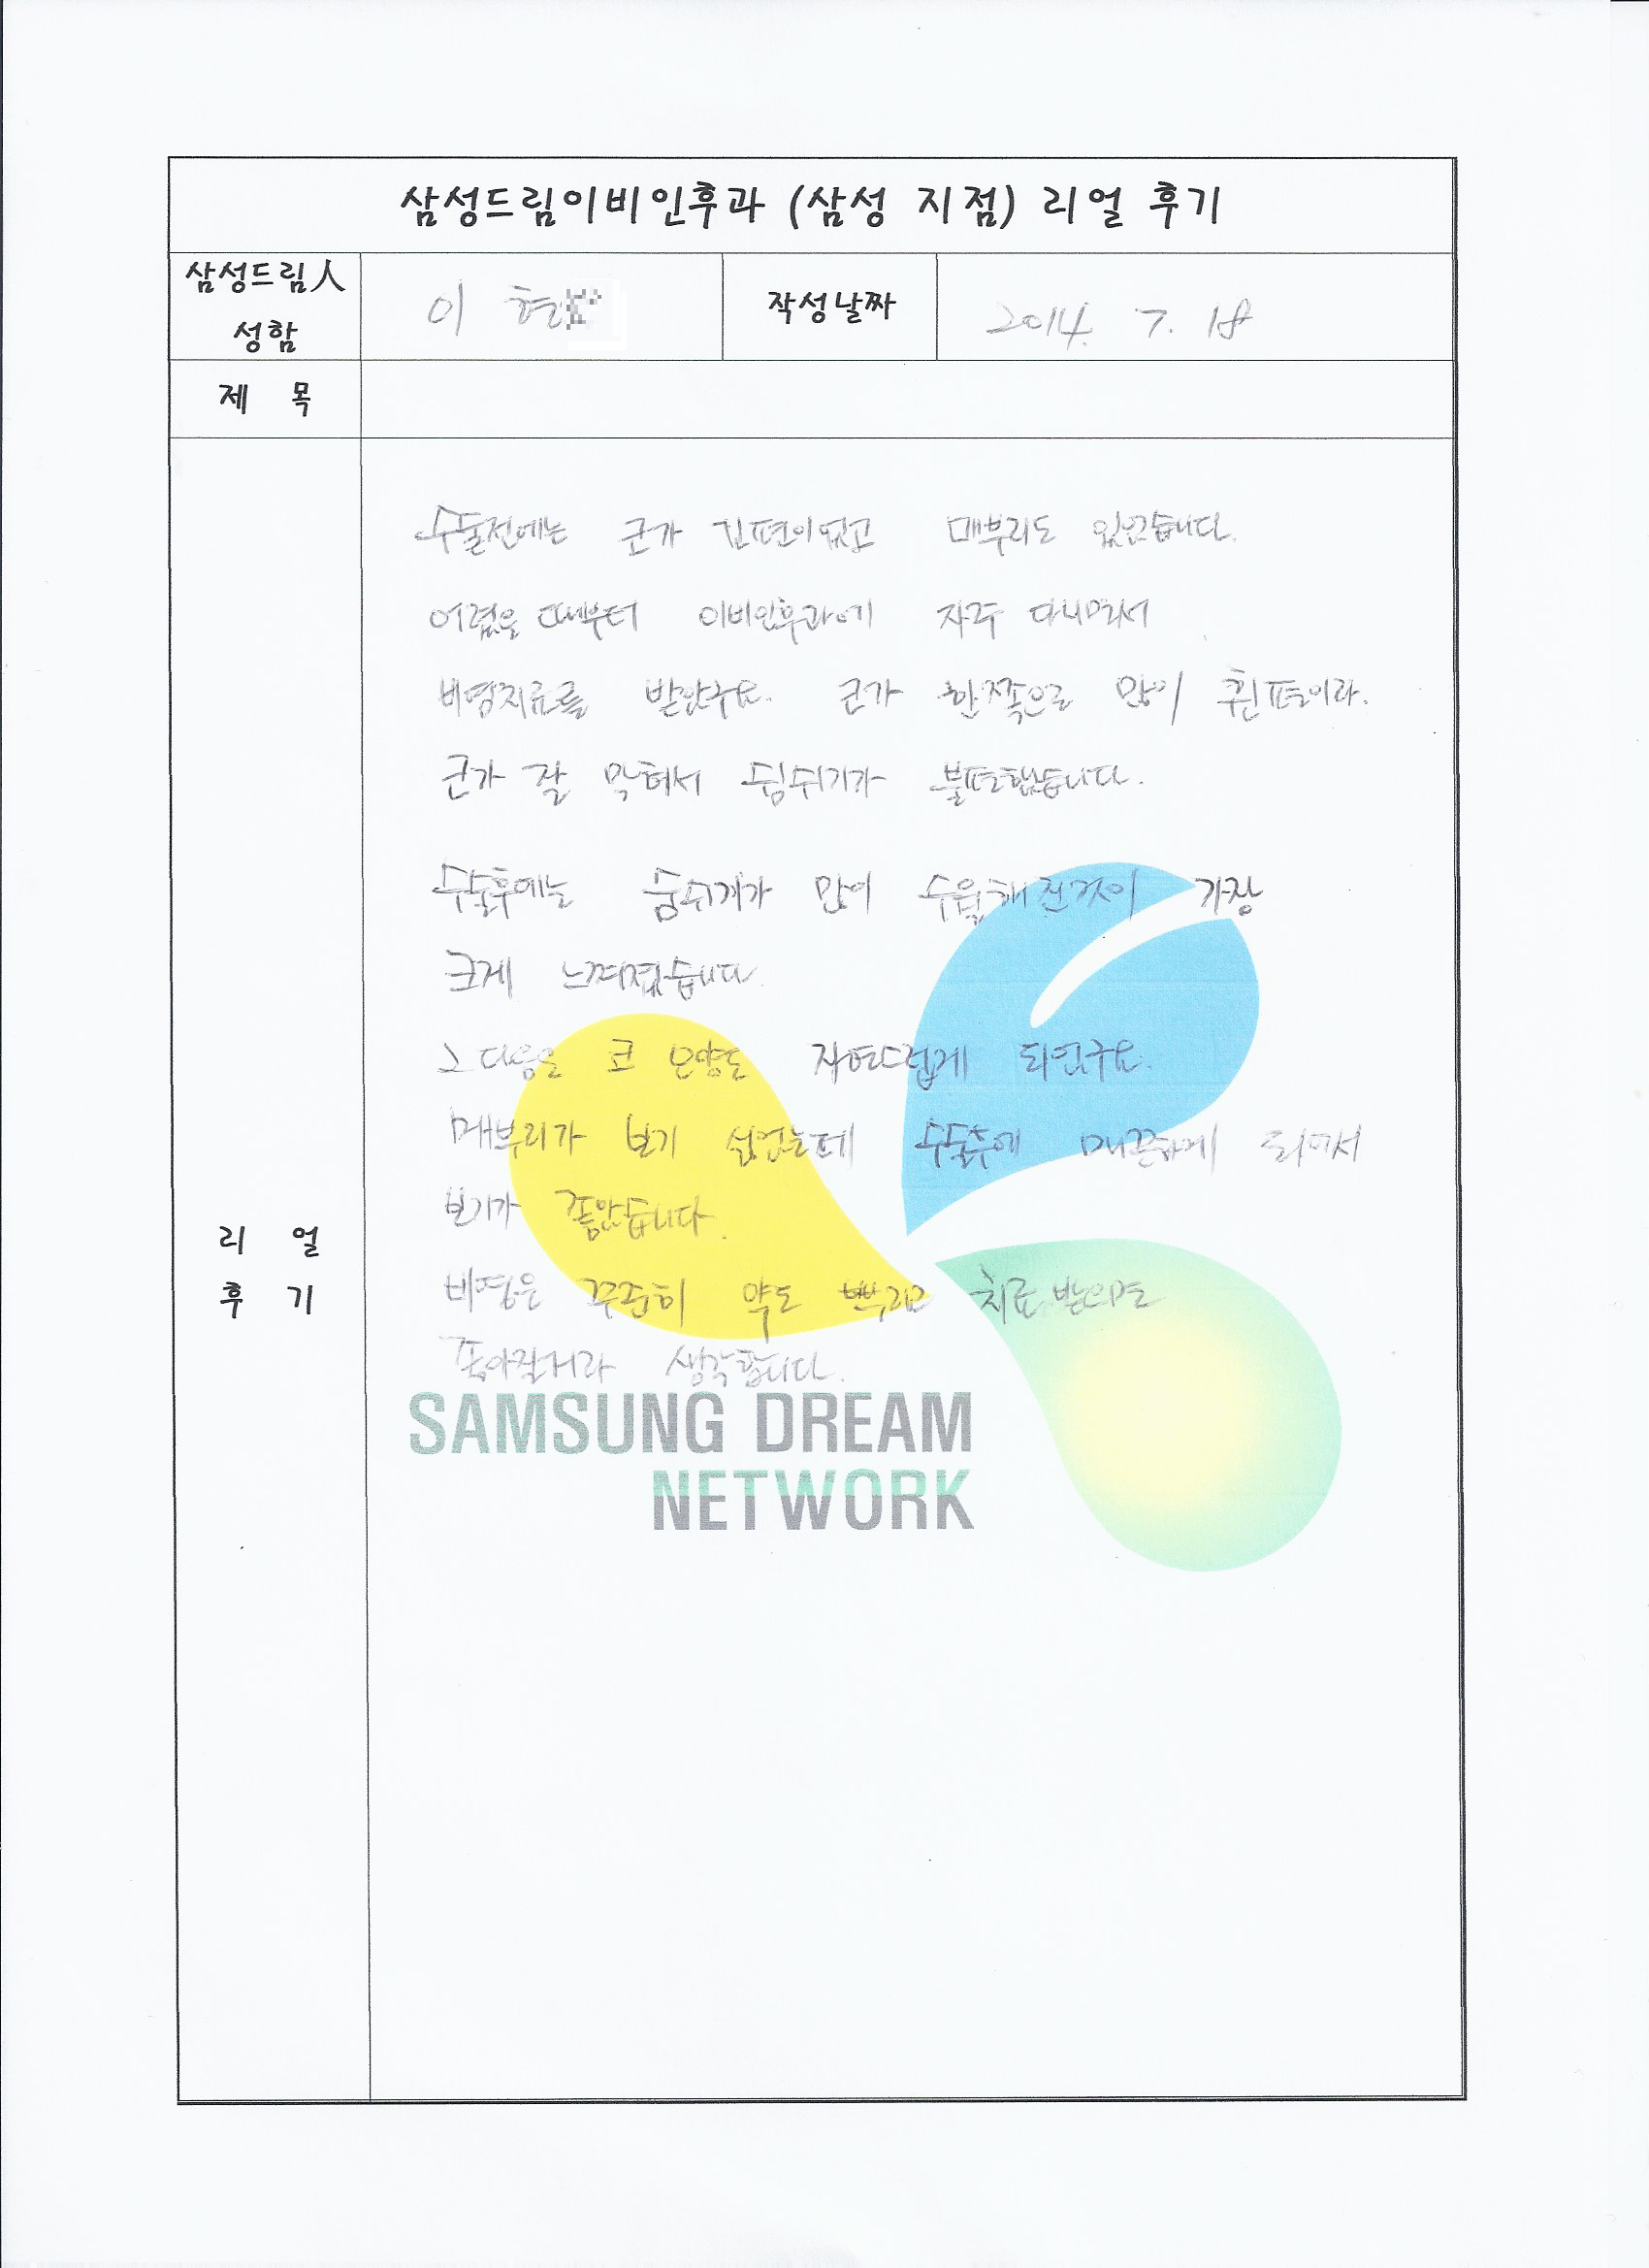 삼성드림이비인후과 (삼성 지점) 리얼 후기
삼성드림人
성함
이 현
작성날짜
2014. 7. 18
제 목
수술전에는 코가 긴편이었고 매부리도 있었습니다.
어렸을 때부터 이비인후과에 자주 다니면서
비염치료를 받았구요. 코가 한쪽으로 많이 휜편이라.
코가 잘 막혀서 숨쉬기가 불편했습니다.
수술후에는 숨쉬기가 많이 수월해진것이 가장
크게 느껴졌습니다.
그 다음은 코 모양도 자연스럽게 되었구요.
매부리가 보기 싫었는데 수술후에 매끈하게 되어서
보기가 좋았습니다.
리 얼
후 기
비염은 꾸준히 약도 뿌리고 치료 받으면
좋아질거라 생각합니다.
SAMSUNG DREAM
NETWORK